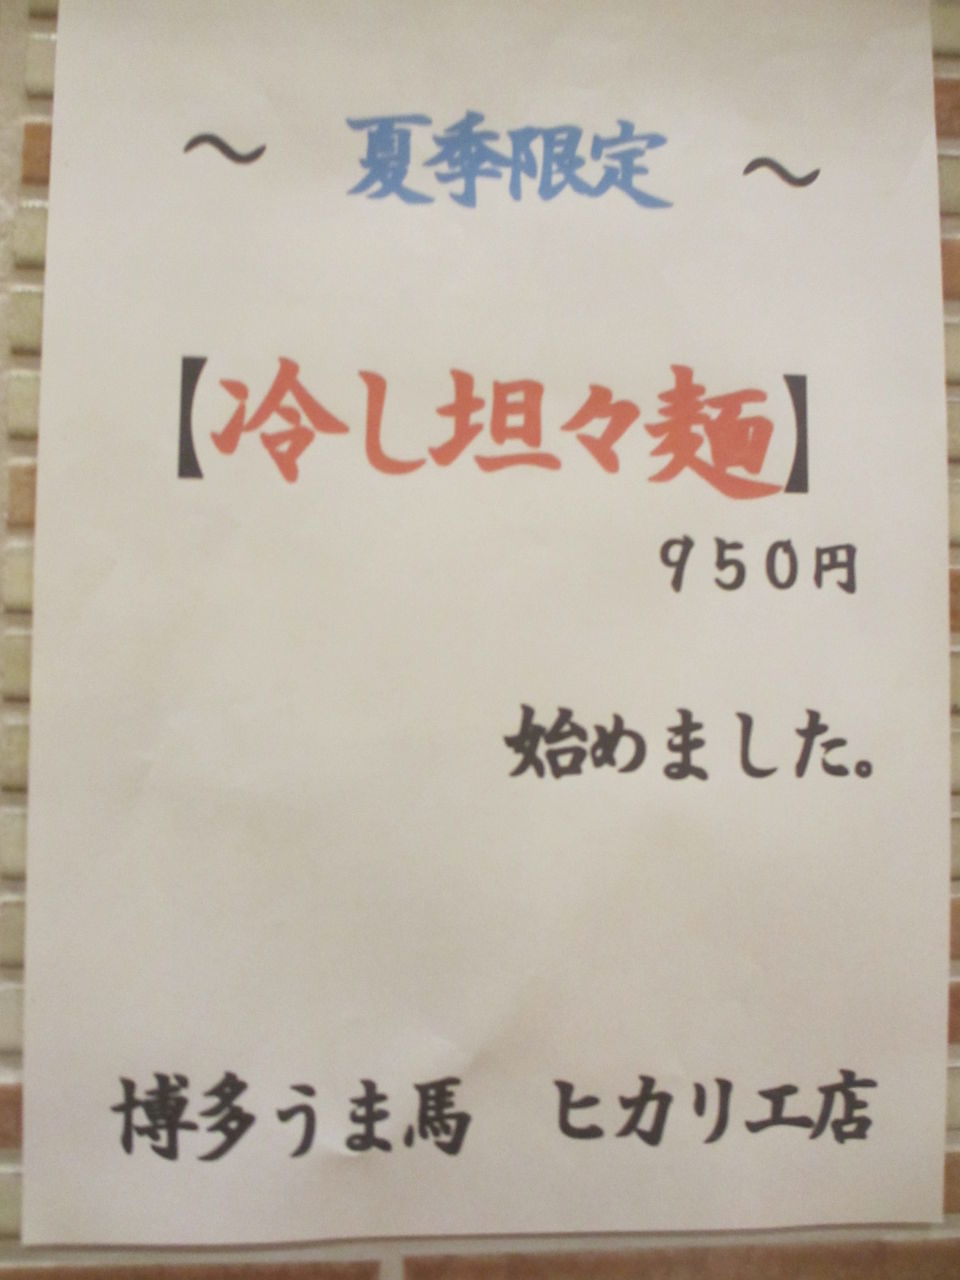 ～ 夏季限定 ～
【冷し坦々麺】
９５０円
始めました。
博多うま馬　ヒカリエ店